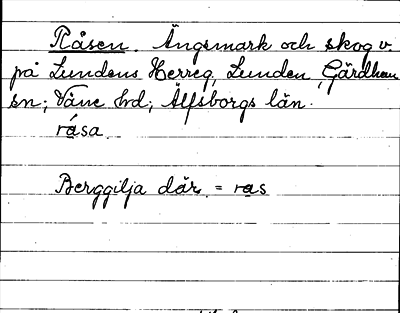 Råsen. Ängsmark och skog v.
på Lundens Herreg, Lunden, Gärdhem
sn; Väne hd; Älfsborgs län.
råsa.
Berggilja där. = ras